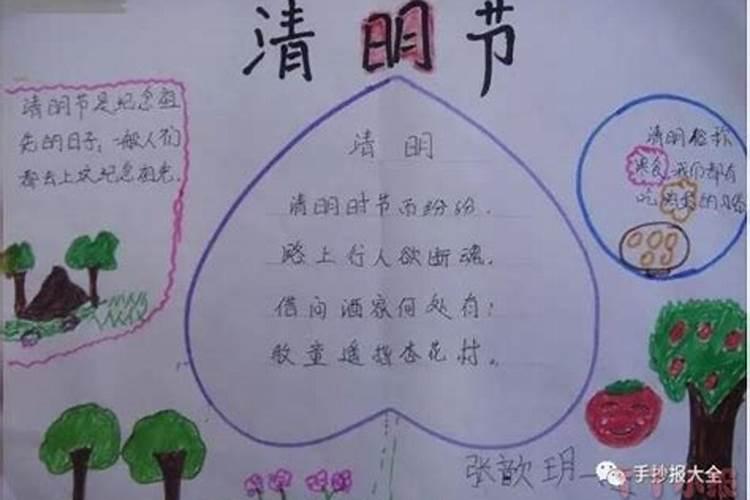 清明节
清明节是纪念祖
先的日子,一般人们
都去上坟纪念祖先.
清 明
清明时节雨纷纷.
路上行人欲断魂.
借问酒家何处有:
牧童遥指杏花村。
清明俗称
寒食.我们都有
吃的习俗
张歆玥一
手抄报大全